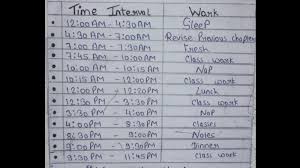 Time Interval Work
12:00AM - 4:30AM Sleep
4:30AM - 7:00AM Revise Previous chapter
7:00AM - 7:30AM Fresh
7:45AM - 10:00AM Class work
10:00AM - 10:15AM Nap
10:15AM - 12:00PM Class work
12:00PM - 12:30PM Lunch
12:30PM - 3:30PM Class work
3:30PM - 4:00PM Nap
4:00PM - 8:30PM Classes
8:30PM - 9:00PM Notes
9:00PM - 9:30PM Dinner
9:30PM - 11:45PM Class work